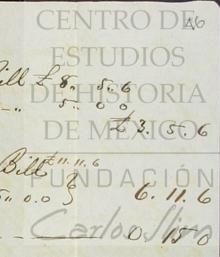 46
CENTRO DE
ESTUDIOS
DE HISTORIA
DE MÉXICO
FUNDACIÓN
Carlos Slim
Bill £ 8 „ 5 „ 6
„ 5 „ 0 0
£ 3 . 5 . 6
Bill £ 11 . 11 . 6
5 „ 0 . 0 } 6 . 11 . 6
0 . 15 0